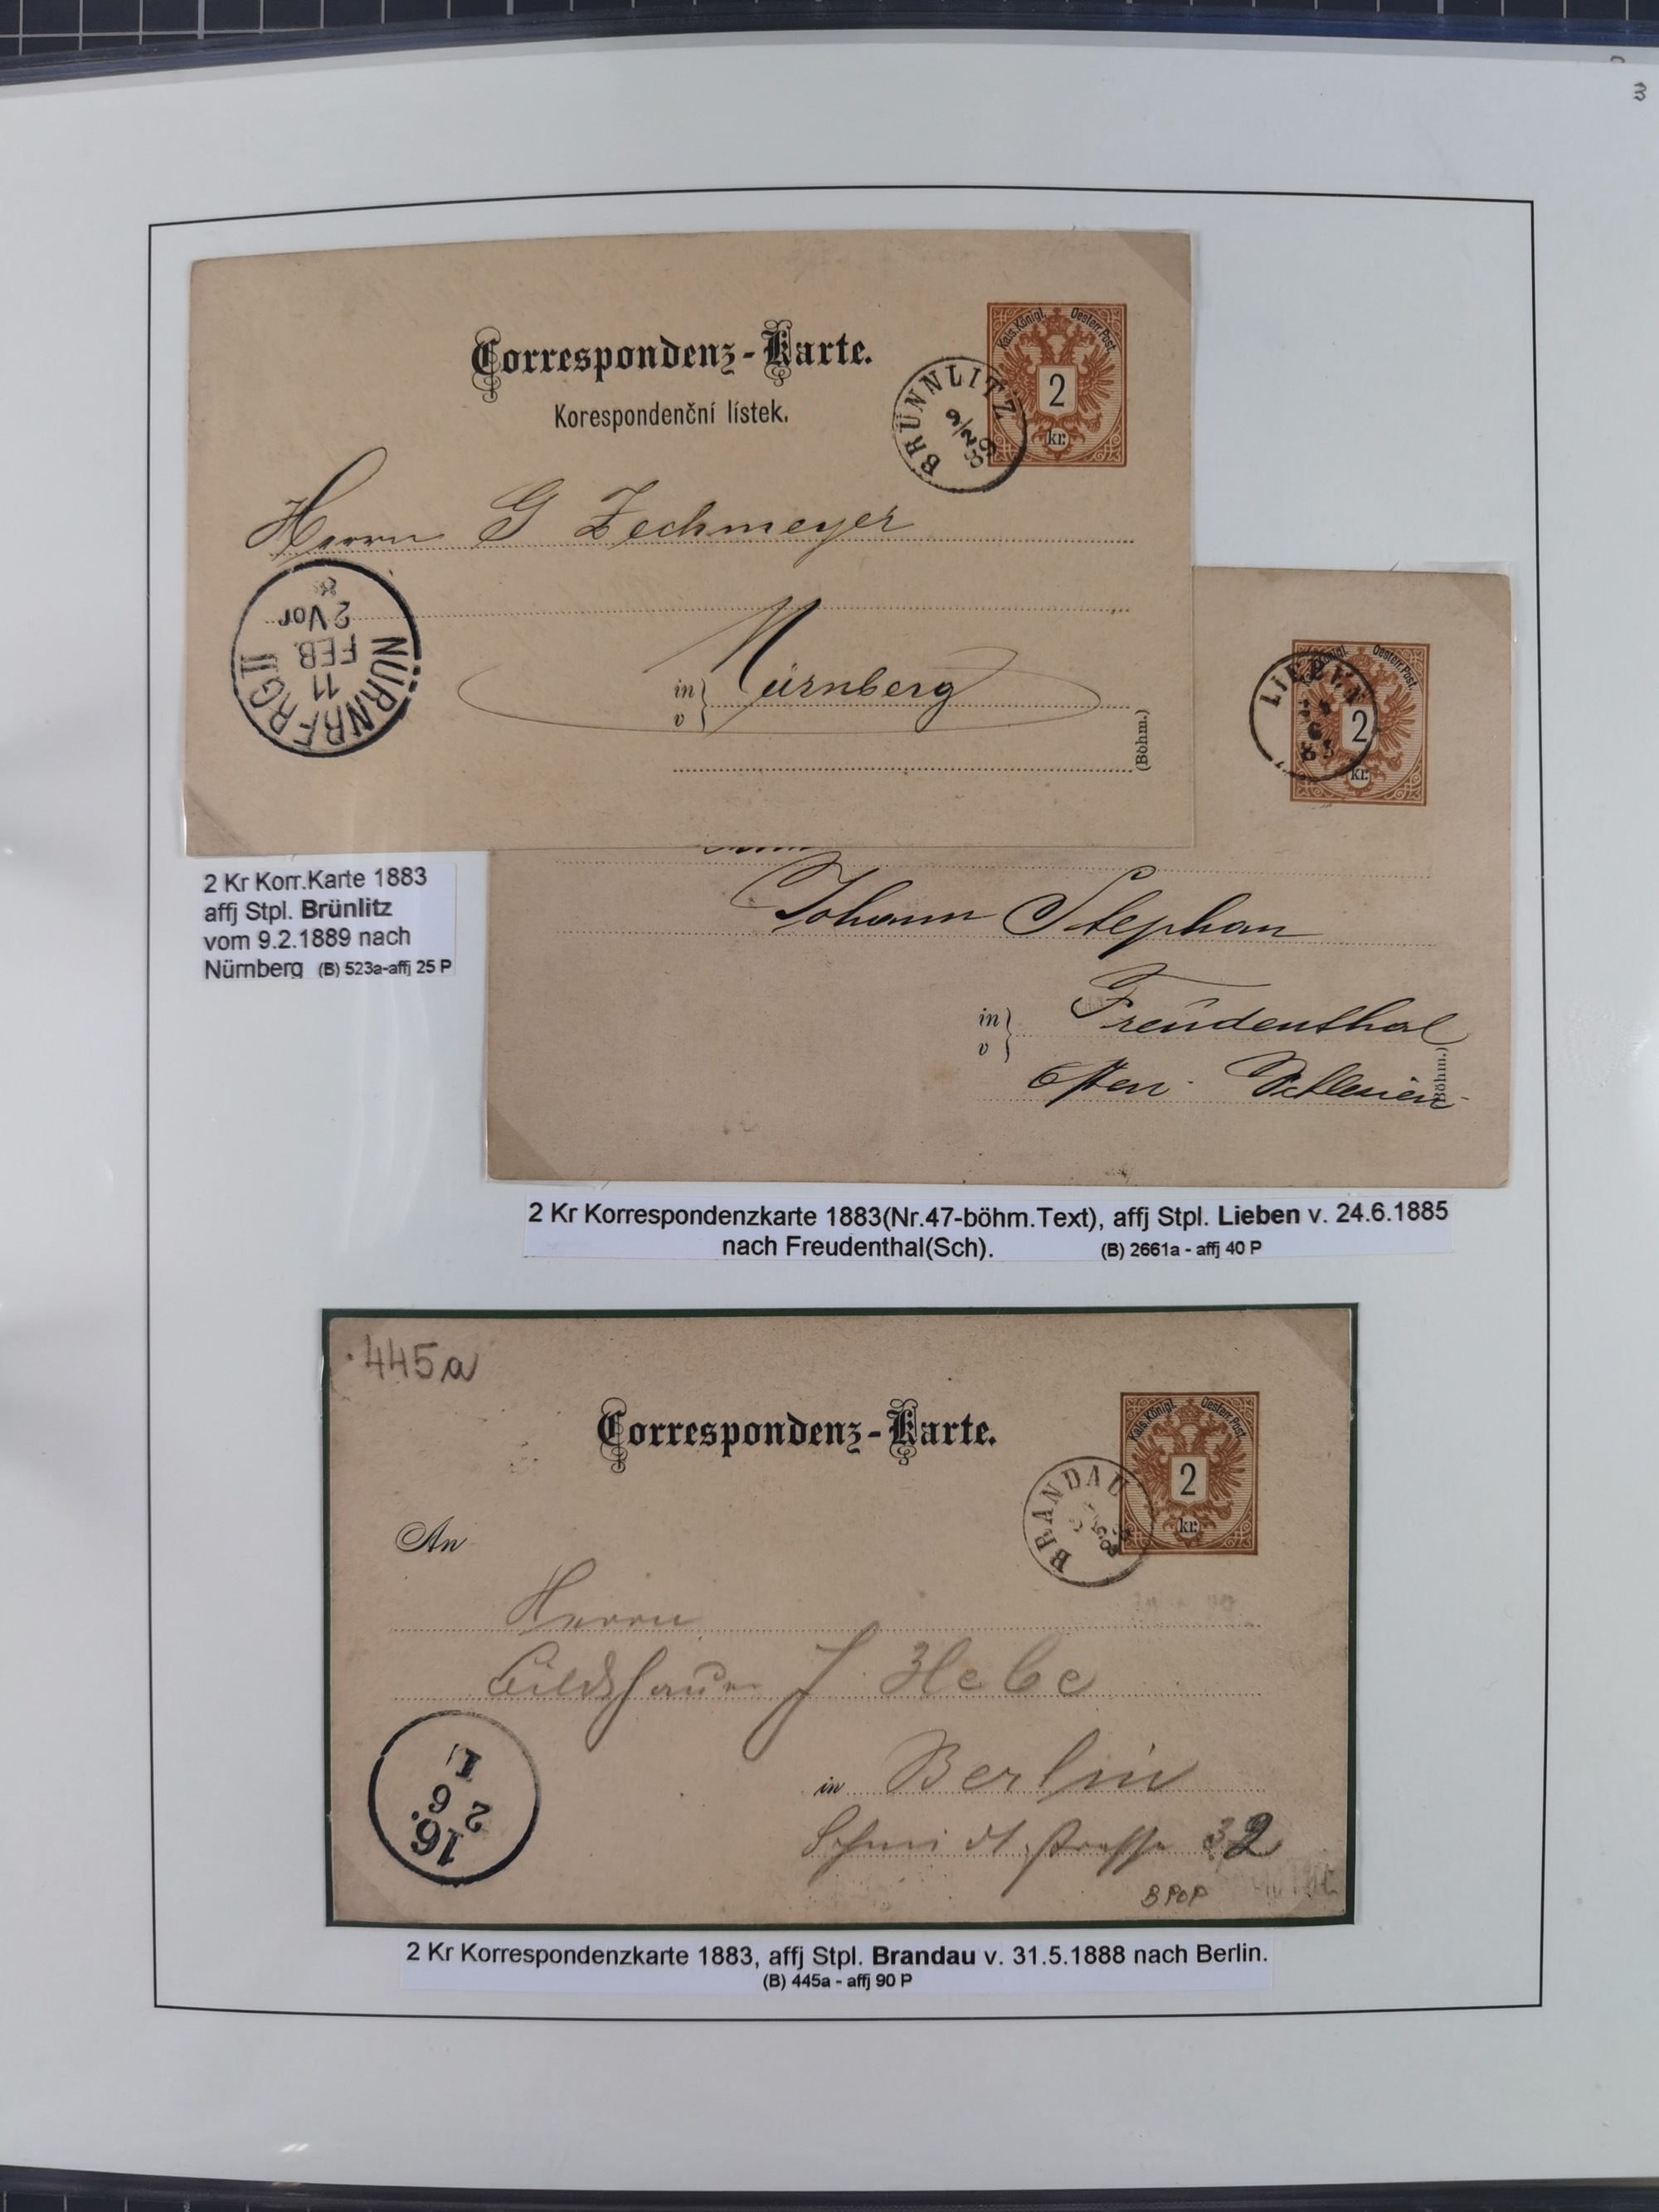 Correspondenz-Karte.
Korespondenční lístek.
Kais. Königl. Oesterr. Post.
2
kr.
BRÜNNLITZ
9/2
89
Herrn G Zechmeyer
in
v
Nürnberg
(Böhm.)
NÜRNBERG II
11
FEB.
2 Vor
2 Kr Korr.Karte 1883
affj Stpl. Brünlitz
vom 9.2.1889 nach
Nürnberg (B) 523a-affj 25 P
Königl. Oesterr. Post.
2
kr.
LIEBEN
Johann Stephan
in
v
Freudenthal
Schlesien
Böhm.)
2 Kr Korrespondenzkarte 1883(Nr.47-böhm.Text), affj Stpl. Lieben v. 24.6.1885
nach Freudenthal(Sch). (B) 2661a - affj 40 P
445a
Correspondenz-Karte.
Kais. Königl. Oesterr. Post.
2
kr.
BRANDAU
An
Herrn
Bildhauer J
in Berlin
Schmidtstrasse 32
16.
2
6
BPOP
2 Kr Korrespondenzkarte 1883, affj Stpl. Brandau v. 31.5.1888 nach Berlin.
(B) 445a - affj 90 P